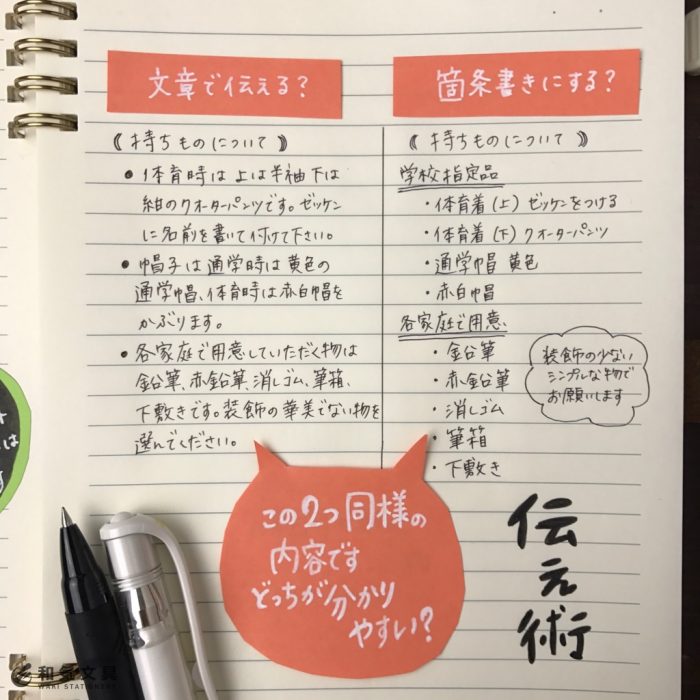 文章で伝える？
《持ちものについて》
• 体育時は上は半袖下は
紺のクオーターパンツです。ゼッケン
に名前を書いて付けて下さい。
• 帽子は通学時は黄色の
通学帽、体育時は赤白帽を
かぶります。
• 各家庭で用意していただく物は
鉛筆、赤鉛筆、消しゴム、筆箱、
下敷きです。装飾の華美でない物を
選んでください。
箇条書きにする？
《持ちものについて》
学校指定品
・体育着(上) ゼッケンをつける
・体育着(下) クオーターパンツ
・通学帽 黄色
・赤白帽
各家庭で用意
・鉛筆
・赤鉛筆
・消しゴム
・筆箱
・下敷き
装飾の少ない
シンプルな物で
お願いします
この2つ同様の
内容です
どっちが分かり
やすい？
伝え術
は
和気文具
WAKI STATIONERY